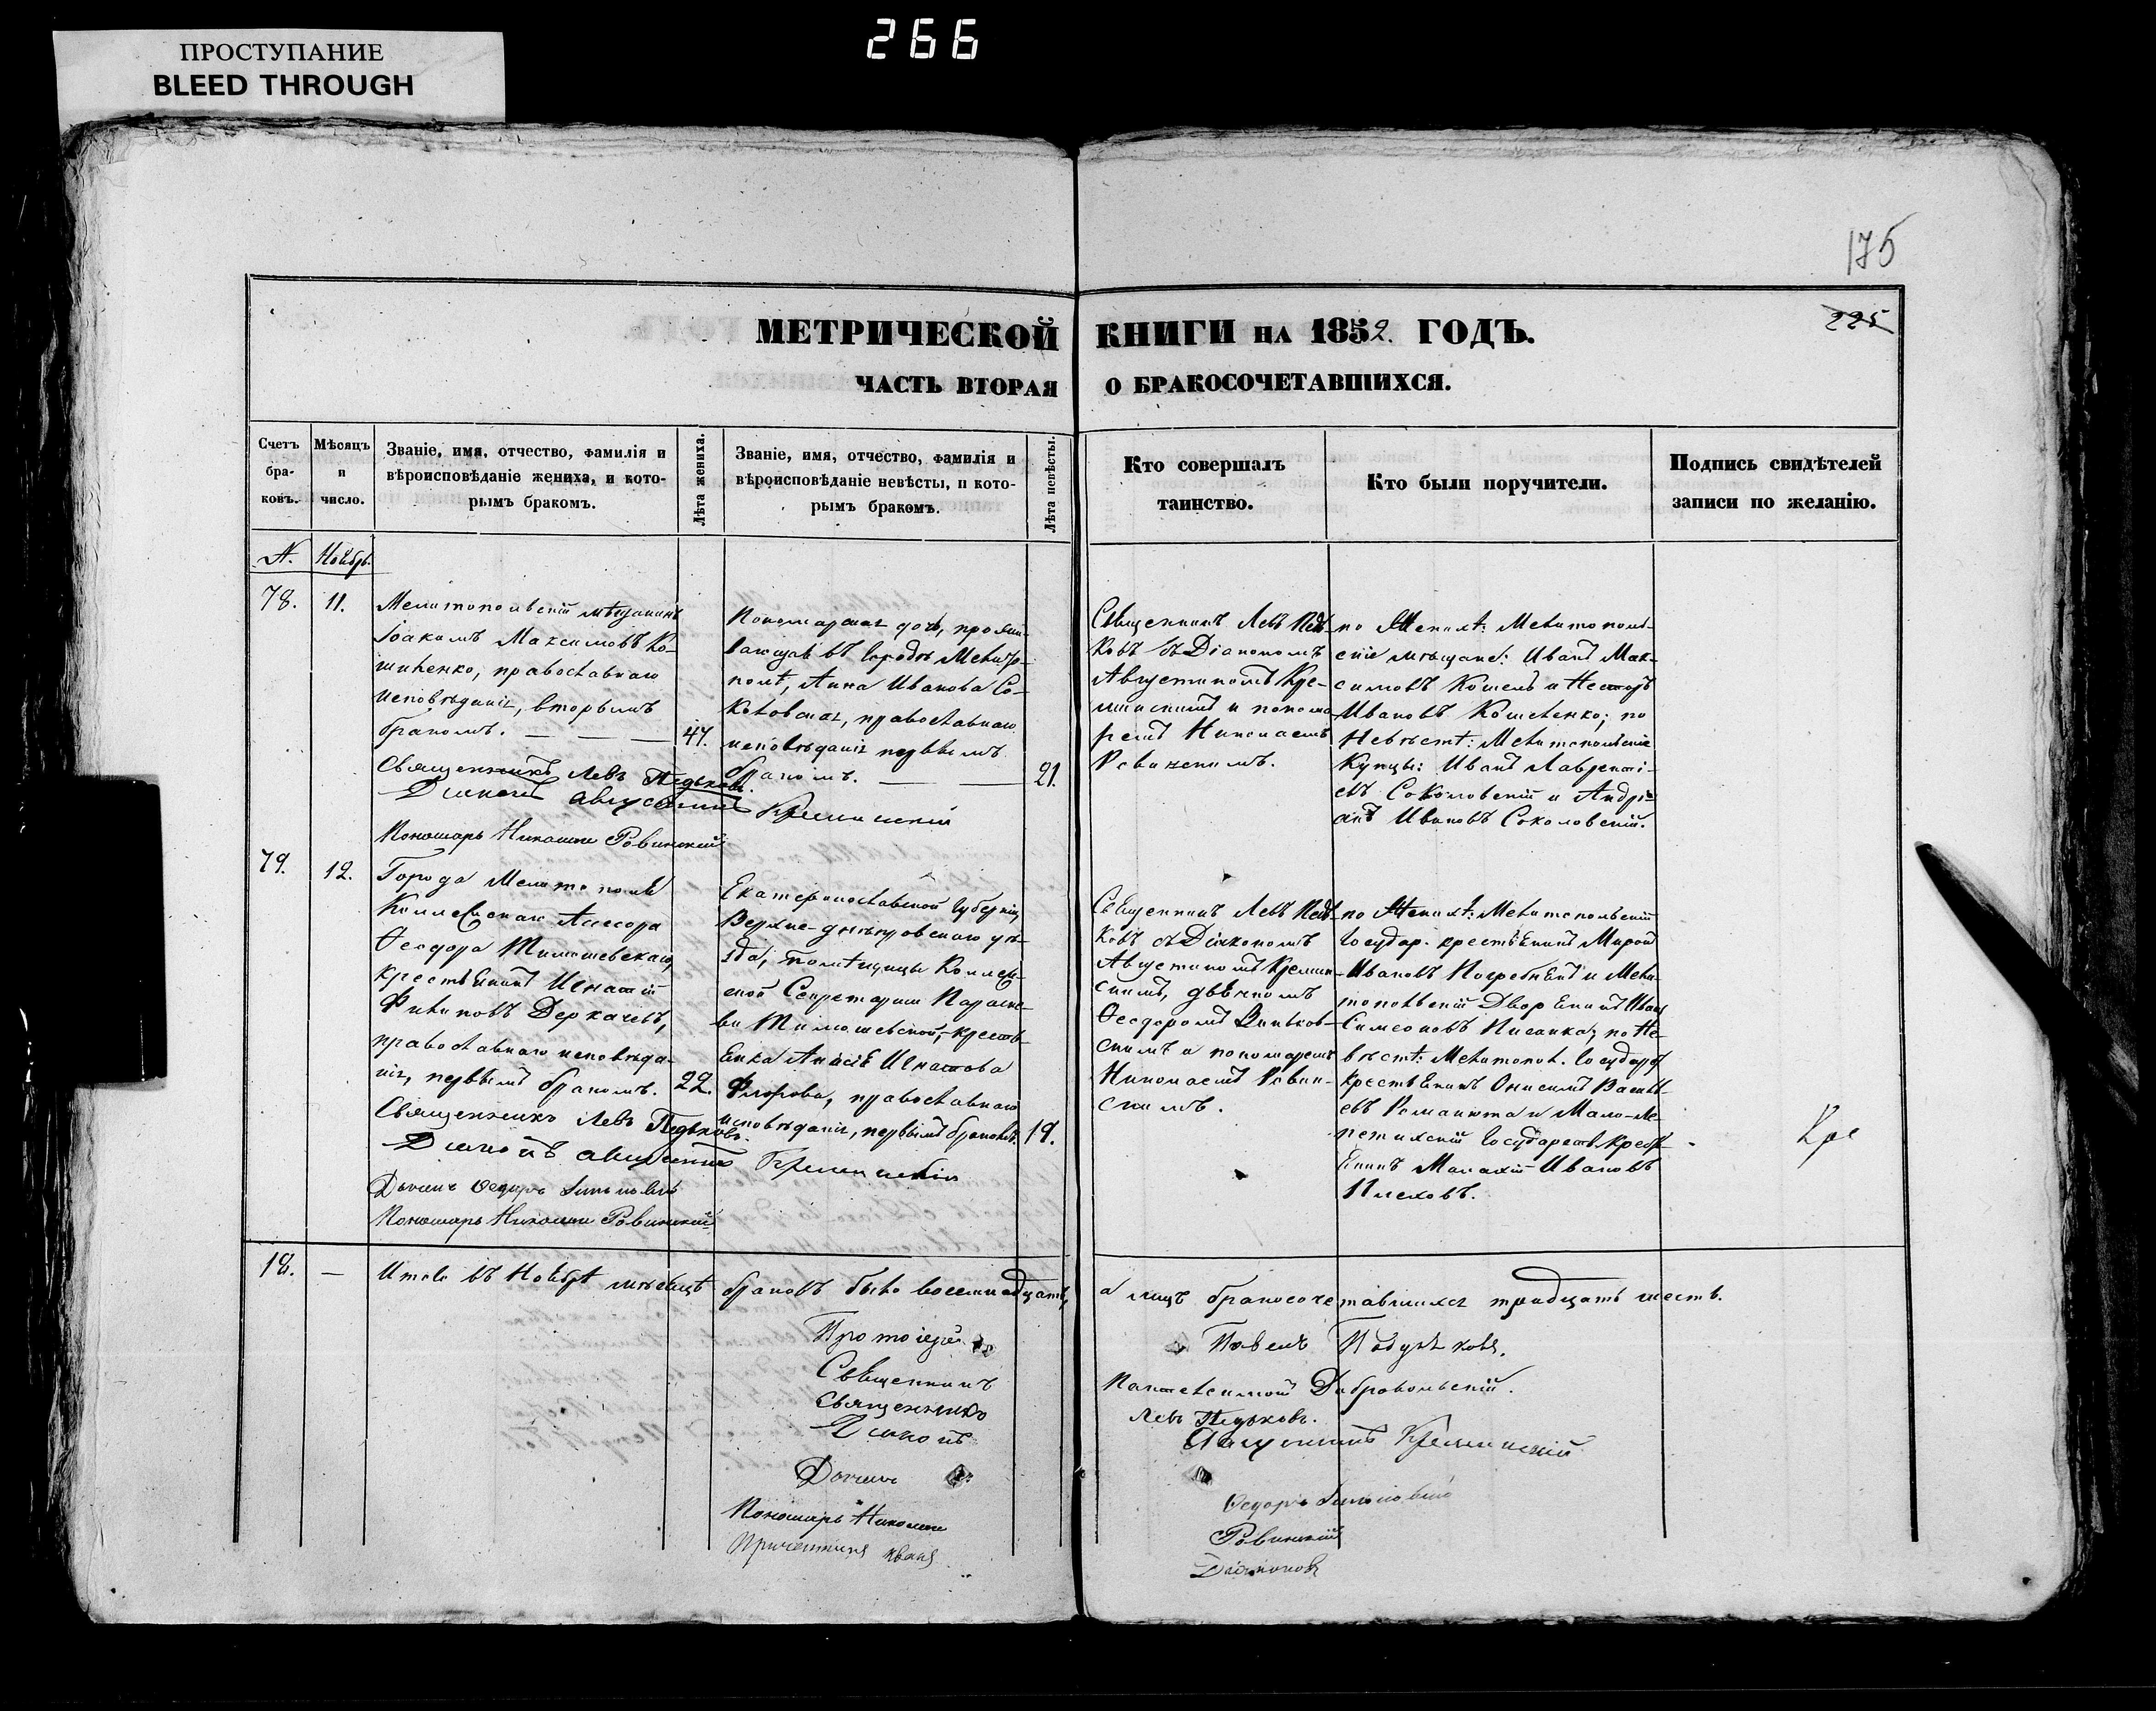 ПРОСТУПАНИЕ
BLEED THROUGH
266
175
225
МЕТРИЧЕСКОЙ КНИГИ НА 1852. ГОДЪ.
ЧАСТЬ ВТОРАЯ О БРАКОСОЧЕТАВШИХСЯ.
Счетъ бра-ковъ.
Мѣсяцъ и число.
Званіе, имя, отчество, фамилія и
вѣроисповѣданіе жениха, и кото-
рымъ бракомъ.
Лѣта жениха.
Званіе, имя, отчество, фамилія и
вѣроисповѣданіе невѣсты, и кото-
рымъ бракомъ.
Лѣта невѣсты.
Кто совершалъ
таинство.
Кто были поручители.
Подпись свидѣтелей
записи по желанію.
N. Ноябрь.
78. 11.
Мелитопольскій мѣщанинъ
Іоакимъ Максимовъ Ко-
шиленко, православнаго
исповѣданія, вторымъ
бракомъ. — — — 47.
Священникъ Левъ Педьковъ.
Діаконъ Августинъ Креминскій
Пономарь Николай Ровинскій
Пономарская дочь, прожи-
вающая въ городѣ Мелито-
полѣ, Анна Иванова Со-
коловская, православнаго
исповѣданія первымъ
бракомъ. — 21.
Священникъ Левъ Педь-
ковъ съ Діакономъ
Августиномъ Кре-
минскимъ и понома-
ремъ Николаемъ
Ровинскимъ.
по Женихѣ: Мелитополь-
скіе мѣщане: Иванъ Мак-
симовъ Кошель и Несторъ
Ивановъ Кошеленко; по
Невѣстѣ: Мелитопольскіе
Купцы: Иванъ Лавренті-
евъ Соколовскій и Андрі-
анъ Ивановъ Соколовскій.
79. 12.
Города Мелитополя
Коллежскаго Ассесора
Ѳеодора Тимошевскаго,
крестьянинъ Игнатій
Филиповъ Деркачевъ,
православнаго исповѣда-
нія, первымъ бракомъ. 22.
Священникъ Левъ Педьковъ.
Діаконъ Августинъ Креминскій
Дьячекъ Ѳедоръ
Пономарь Николай Ровинскій
Екатеринославской Губерніи,
Верхне-днѣпровскаго уѣ-
зда, помѣщицы Коллеж-
ской Секретарши Параске-
вы Тимошевской, крестья-
нка Анастасія Игнатова
Фролова, православнаго
исповѣданія, первымъ бракомъ. 19.
Священникъ Левъ Педь-
ковъ съ Діакономъ
Августиномъ Кремин-
скимъ, дьячкомъ
Ѳеодоромъ
скимъ и пономаремъ
Николаемъ Ровин-
скимъ.
по Женихѣ: Мелитопольскій
Государ. крестьянинъ Миронъ
Ивановъ Погребнякъ и Мели-
топольскій Дворянинъ Иванъ
Симеоновъ Писанка; по Не-
вѣстѣ: Мелитопол. Государ.
крестьянинъ Онисимъ Василь-
евъ Романюта и Мало-Ле-
петихскій Государств. кресть-
янинъ Малахій Ивановъ
Плеховъ.
Кре
18. —
Итого въ Ноябрѣ мѣсяцѣ браковъ было восемнадцать, а лицъ бракосочетавшихся тридцать шесть.
Протоіерей Павелъ
Священникъ Пантелеимонъ Добровольскій.
Священникъ Левъ Педьковъ.
Діаконъ Августинъ Креминскій
Дьячекъ Ѳедоръ
Пономарь Николай Ровинскій
Причетникъ Иванъ